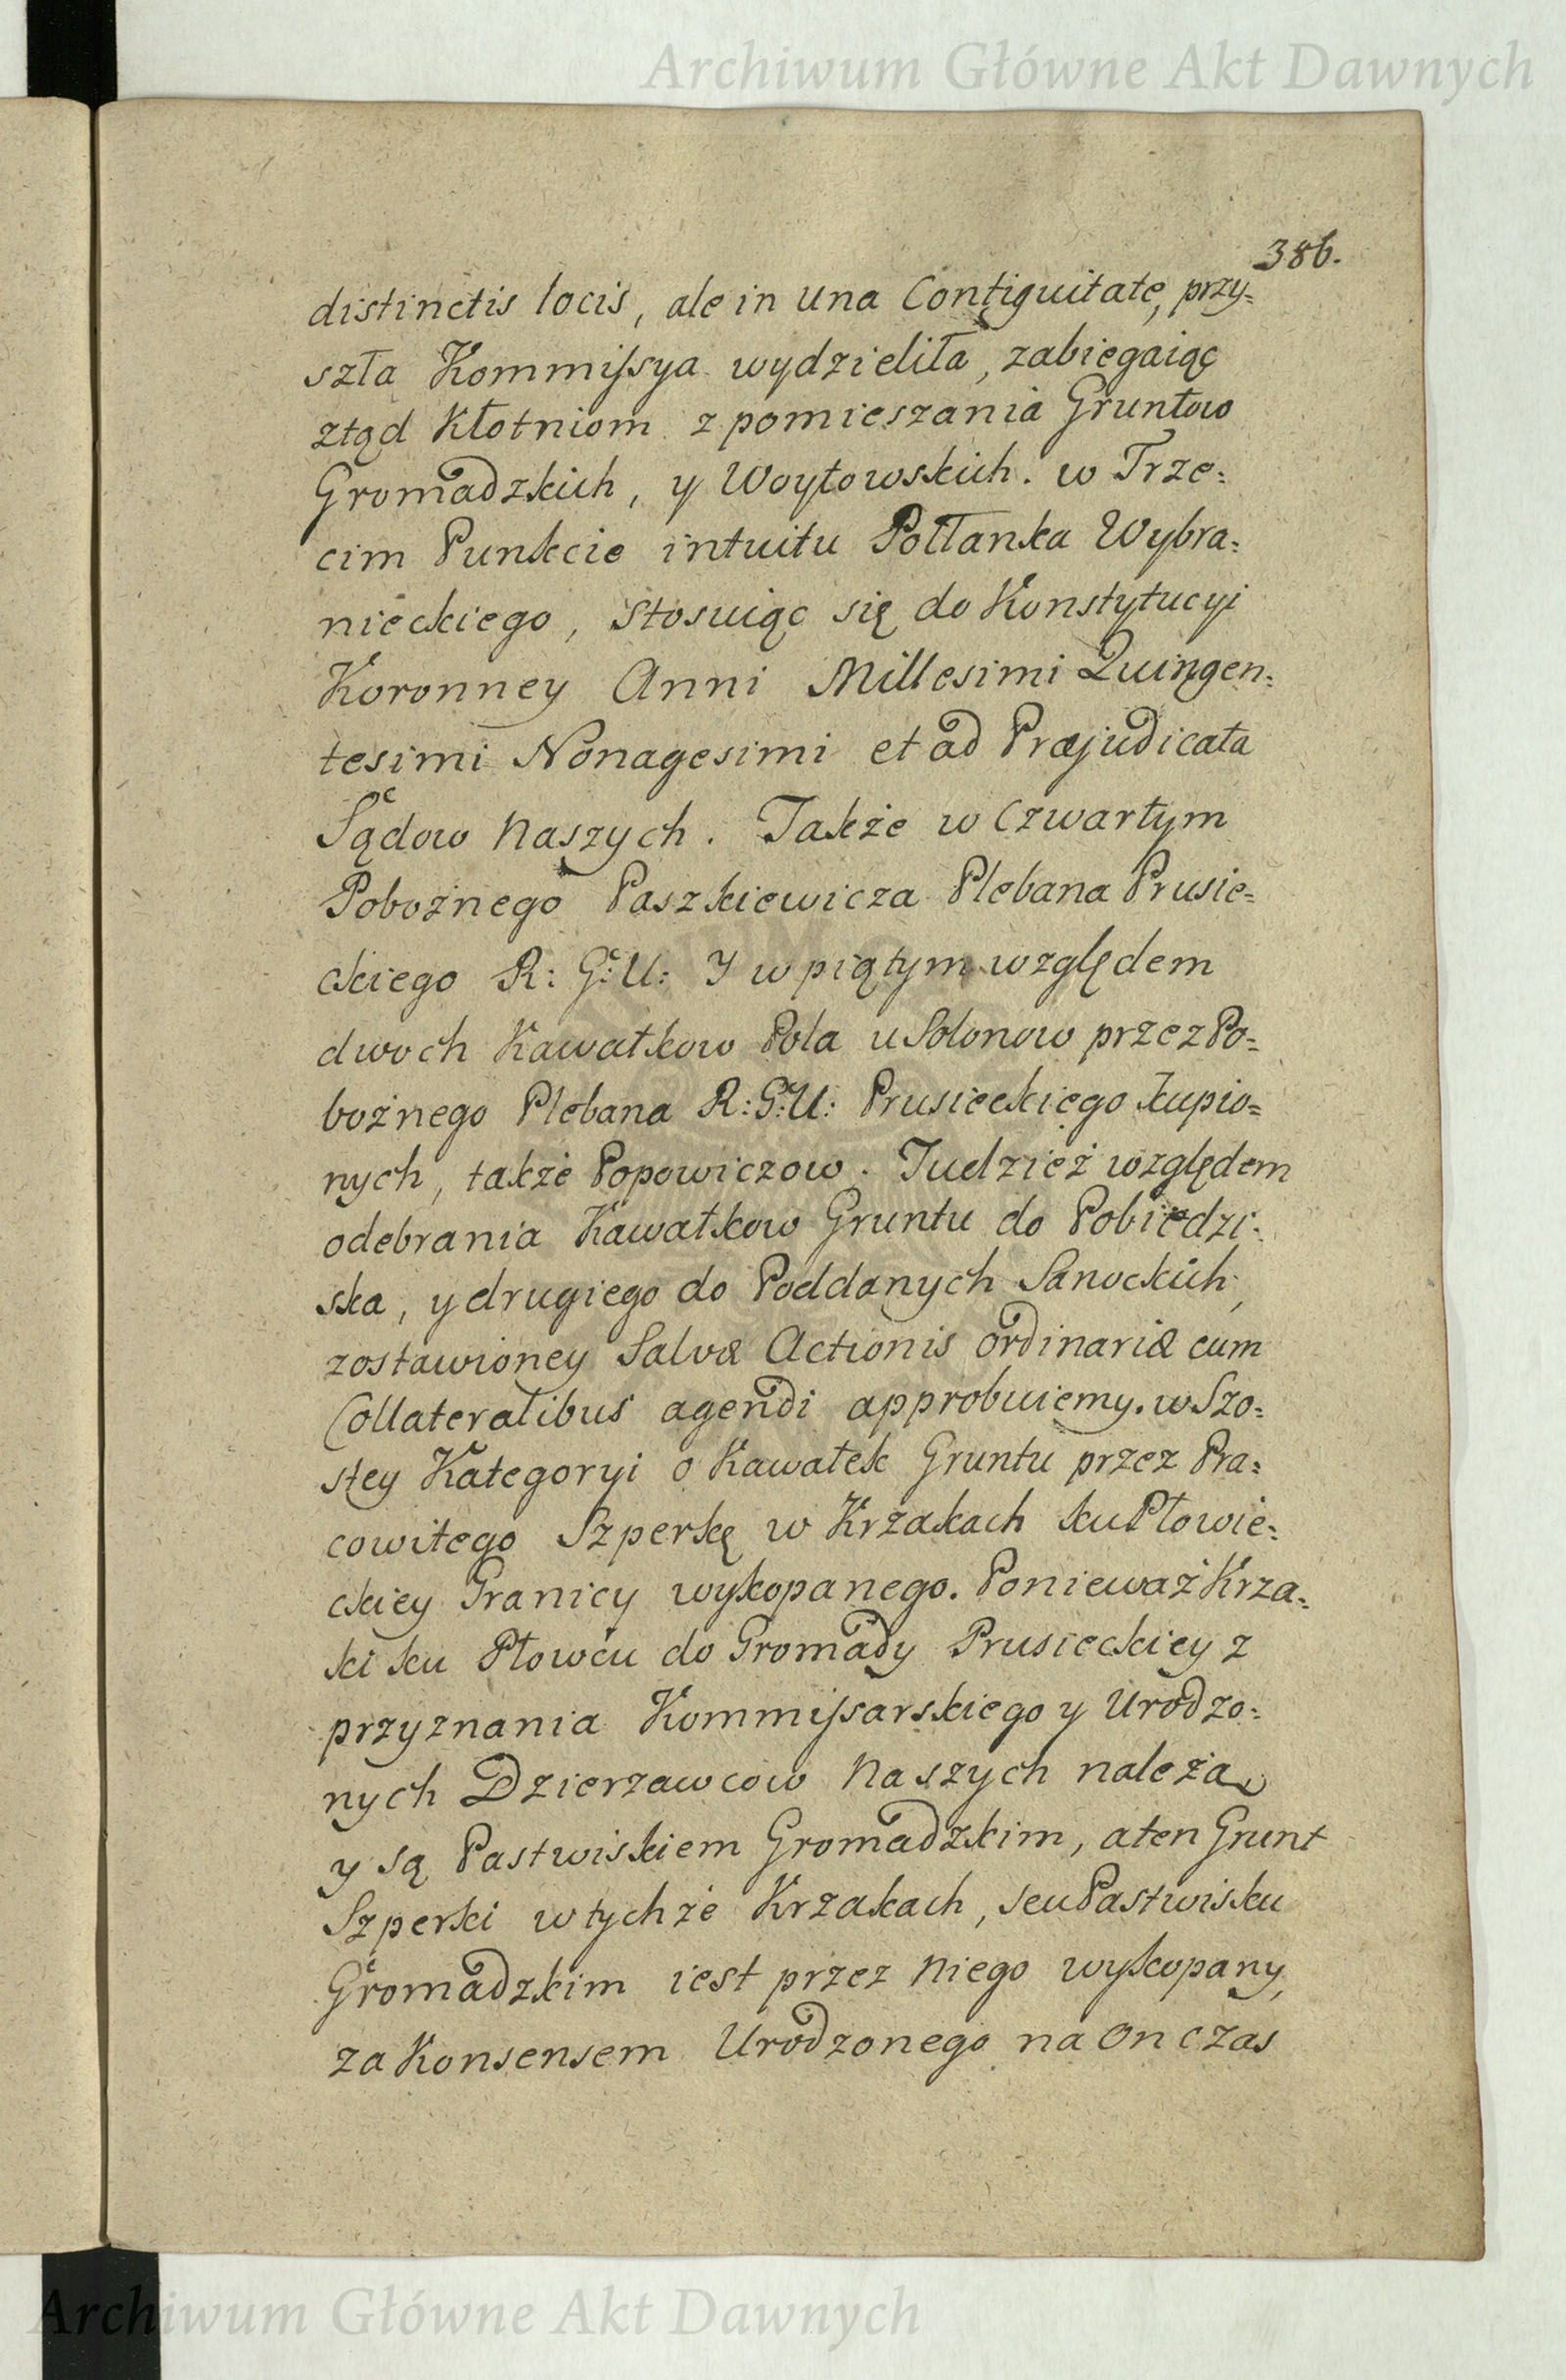 Archiwum Główne Akt Dawnych
386.
distinctis locis, ale in una Contiguitate, przy=
szła Kommissya wydzieliła, zabiegaiąc
ztąd Kłotniom z pomieszania Gruntow
Gromadzkich, y Woytowskich. w Trze=
cim Punkcie intuitu Połłanka Wybra=
nieckiego, stosuiąc się do Konstytucyi
Koronney Anni Millesimi Quingen=
tesimi Nonagesimi et ad Præjudicata
Sądow Naszych. Także w Czwartym
Pobożnego Paszkiewicza Plebana Prusie=
ckiego R: G: U: Y w piątym względem
dwoch Kawałkow Pola u Solonow przez Po=
bożnego Plebana R: G: U: Prusieckiego kupio=
nych, także Popowiczow. Tudzież względem
odebrania Kawałkow Gruntu do Pobiedzi=
ska, y drugiego do Poddanych Sanockich,
zostawioney Salvæ Actionis ordinariæ cum
Collateralibus agendi approbuiemy. w Szo=
stey Kategoryi o Kawałek Gruntu przez Pra=
cowitego Szperkę w Krzakach ku Płowie=
ckiey Granicy wykopanego. Ponieważ Krza=
ki ku Płowcu do Gromady Prusieckiey z
przyznania Kommissarskiego y Urodzo=
nych Dzierzawcow Naszych należą
y są Pastwiskiem Gromadzkim, a ten Grunt
Szperki w tychże Krzakach, seu Pastwisku
Gromadzkim iest przez niego wykopany,
za Konsensem Urodzonego na on czas
Archiwum Główne Akt Dawnych